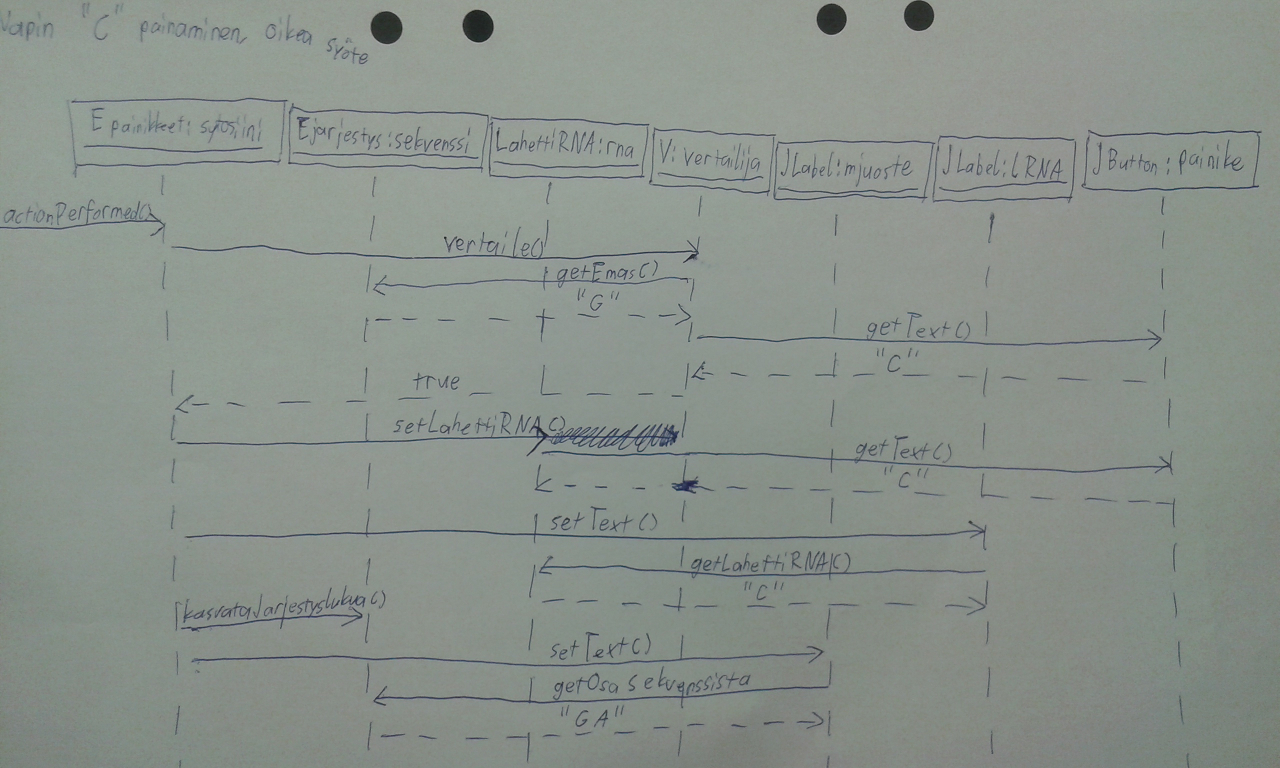 Napin "C" painaminen, oikea syöte
E painikkeet: sytosiini
Ejarjestys:sekvenssi
LahettiRNA:rna
V: vertailija
JLabel:mjuoste
JLabel:lRNA
JButton: painike
actionPerformed()
vertaile()
getEmas()
"G"
getText()
"C"
true
setLahettiRNA()
getText()
"C"
setText()
getLahettiRNA()
"C"
kasvataJarjestyslukua()
setText()
getOsaSekvenssista
"GA"